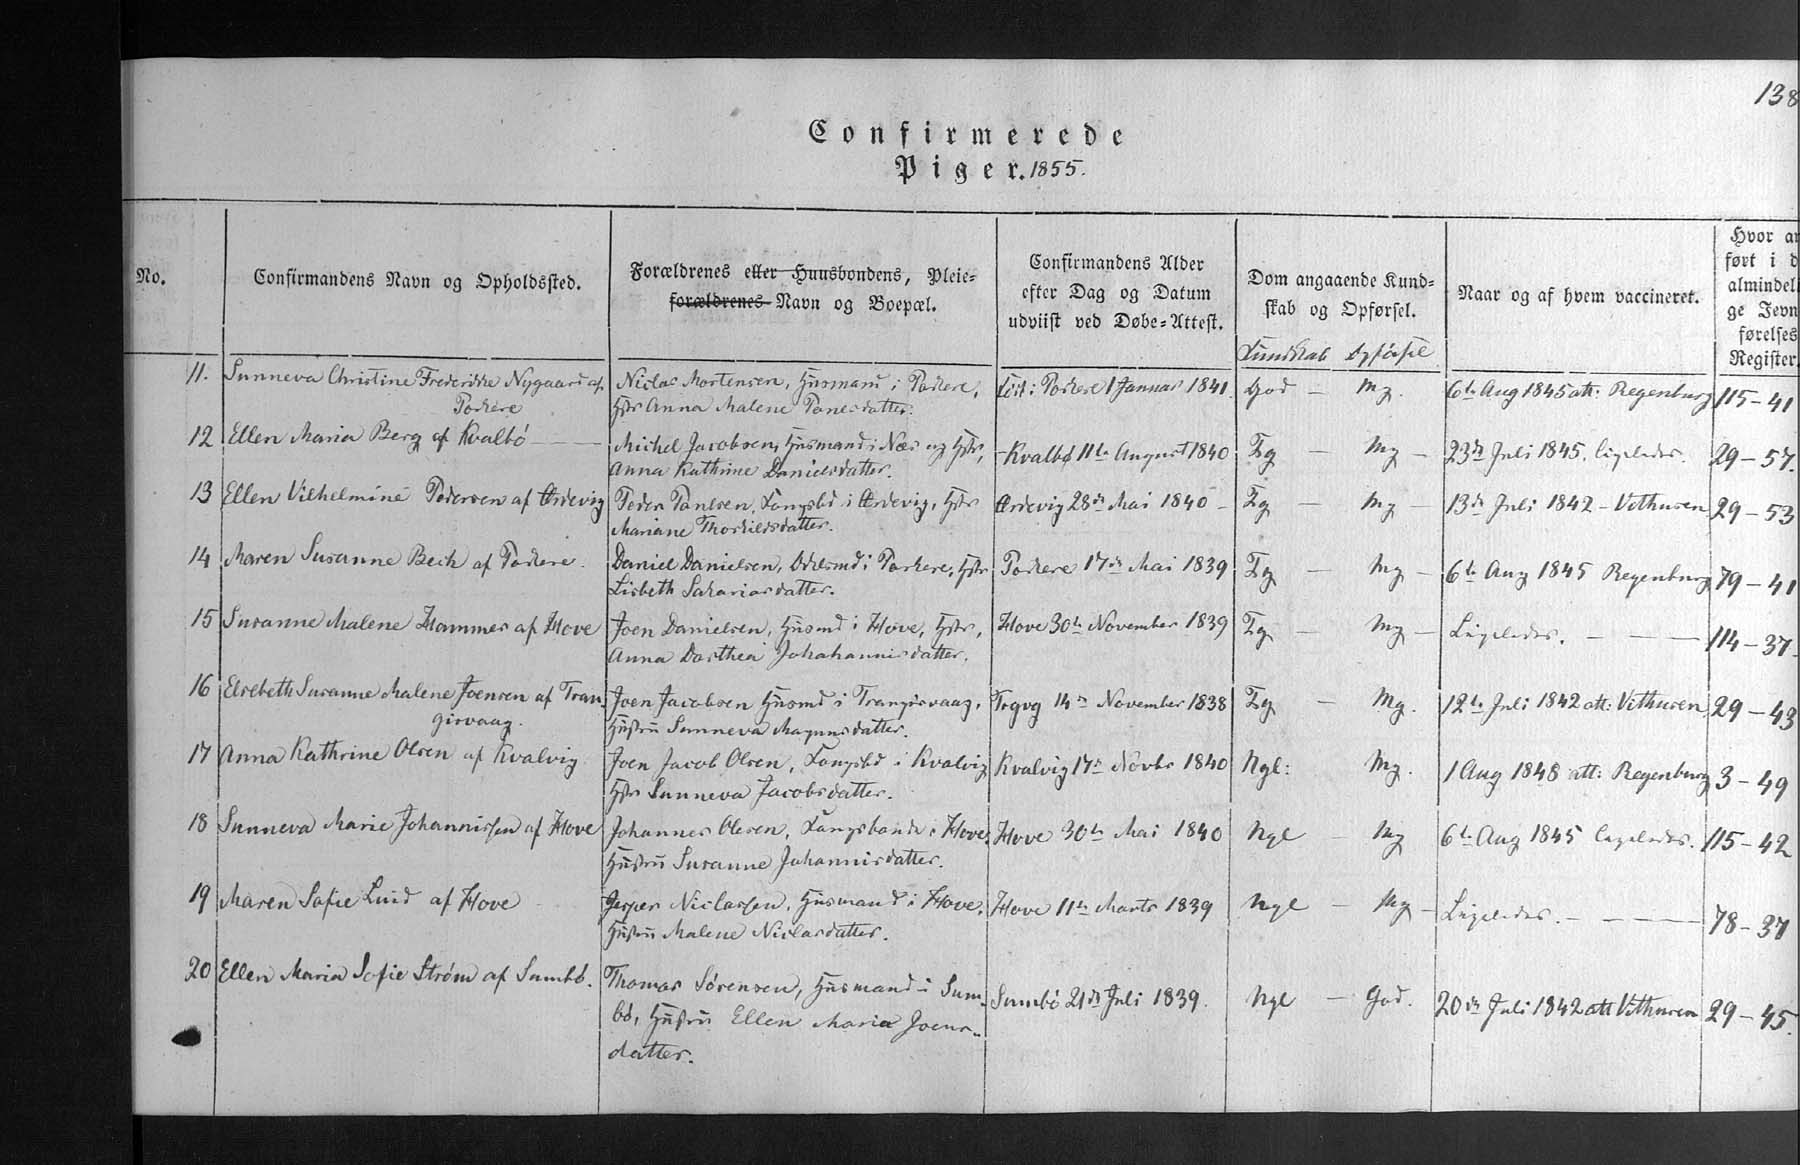 138
Confirmerede
Piger. 1855.
No.
Confirmandens Navn og Opholdssted.
Forældrenes eller Huusbondens, Pleie-
forældrenes Navn og Boepæl.
Confirmandens Alder
efter Dag og Datum
udviist ved Døbe-Attest.
Dom angaaende Kund-
skab og Opførsel.
Kundskab Opførsel
Naar og af hvem vaccineret.
Hvor an
ført i d
almindeli
ge Jevn
førelses
Register.
11. Sunneva Christine Frederikke Nygaard af
Porkere
Niclas Mortensen, Husmand i Porkere,
Hstr Anna Malene Poulsdatter.
Født i Porkere 1 Januar 1841.
God - Mg.
6te Aug 1845 att: Regenburg
115-41
12 Ellen Maria Berg af Kvalbó
Michel Jacobsen, Husmand i Næs og Hstr,
Anna Kathrine Danielsdatter.
Kvalbø 11te August 1840
Tg - Mg -
23de Juli 1845. ligeledes.
29-57.
13 Ellen Vilhelmine Pedersen af Ørdevig
Peder Poulsen, Kongsbd i Ørdevig, Hstr
Mariane Thorkildsdatter.
Ørdevig 28de Mai 1840 -
Tg - Mg -
13de Juli 1842 - Vithusen
29-53
14 Maren Susanne Bech af Porkere.
Daniel Danielsen, Odelsmd i Porkere, Hstr
Lisbeth Sakariasdatter.
Porkere 17de Mai 1839
Tg - Mg -
6te Aug 1845 Regenburg
79-41
15 Susanne Malene Hammer af Hove
Joen Danielsen, Husmd i Hove, Hstr,
Anna Dorthea Johahannisdatter.
Hove 30te November 1839
Tg - Mg -
Ligeledes. - - -
114-37.
16 Elsebeth Susanne Malene Joensen af Tran-
gisvaag.
Joen Jacobsen Husmd i Trangisvaag,
Hustru Sunneva Magnusdatter.
Trgvg 14de November 1838
Tg - Mg.
12te Juli 1842 att: Vithusen
29-43
17 Anna Kathrine Olsen af Kvalvig
Joen Jacob Olsen, Kongsbd i Kvalvig
Hstr Sunneva Jacobsdatter.
Kvalvig 17de Novbr 1840
Ngl: Mg.
1 Aug 1848 att: Regenburg
3-49
18 Sunneva Marie Johannissen af Hove
Johannes Olesen, Kongsbonde i Hove,
Hustru Susanne Johannisdatter.
Hove 30te Mai 1840
Ngl - Mg
6te Aug 1845 ligeledes.
115-42
19 Maren Sofie Luid af Hove
Jesper Niclassen, Husmand i Hove,
Hustru Malene Niclasdatter.
Hove 11te Marts 1839
Ngl - Mg -
Ligeledes. - - - -
78-37
20 Ellen Maria Sofie Strøm af Sumbó.
Thomas Sórensen, Husmand i Sum-
bó, Hustru Ellen Maria Joens-
datter.
Sumbó 21de Juli 1839.
Ngl - God.
20de Juli 1842 att Vithusen
29-45.